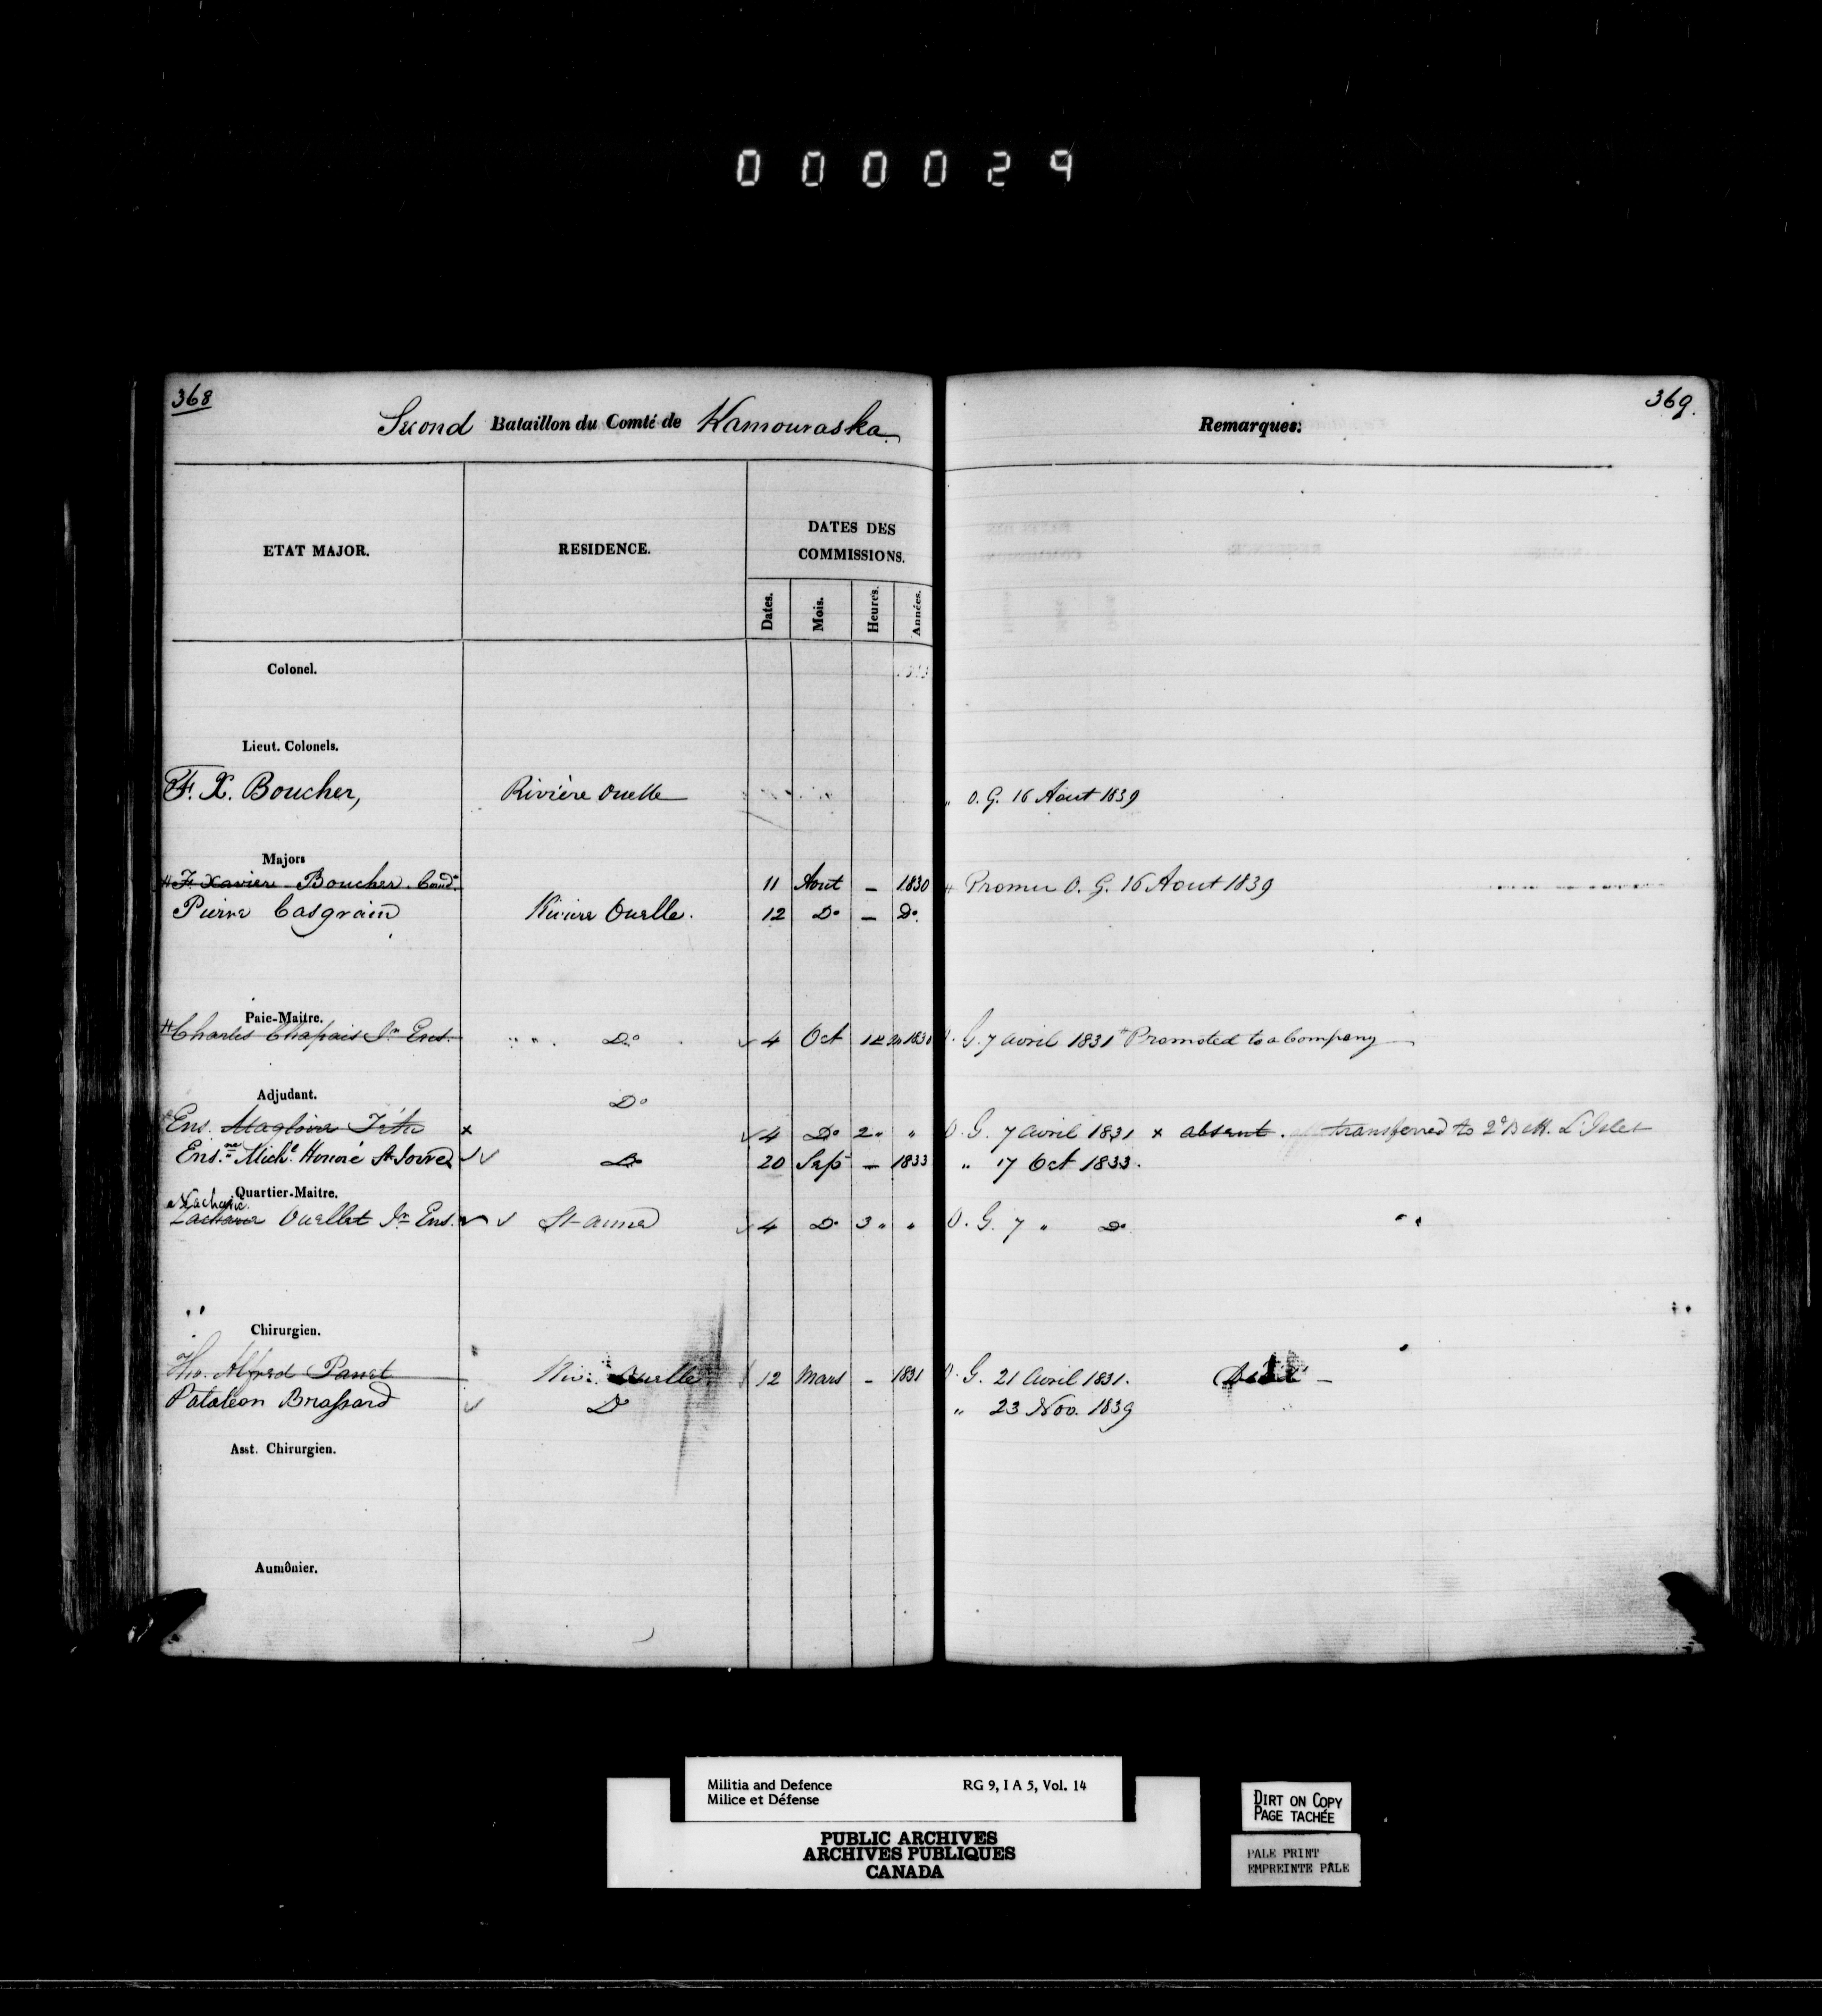 000029
368
Second Bataillon du Comté de Kamouraska
ETAT MAJOR.
RESIDENCE.
DATES DES
COMMISSIONS.
Dates.
Mois.
Heures.
Années.
Colonel.
Lieut. Colonels.
F. X. Boucher, Rivière Ouelle
Majors
F. Xavier Boucher 11 Aout — 1830
Pierre Casgrain Riviere Ouelle. 12 Do — Do.
Paie-Maitre.
Charles Chapais Jr. Ens. Do 4 Oct
Adjudant.
Do
Ens. Magloire Tétu x 4 Do 2 " "
Ens. Honoré Do 20 Sep — 1833
Quartier-Maitre.
Zacharie Ouellet Jr Ens. St anne 4 Do 3 " "
Chirurgien.
Alfred Panet Rivi. Ouelle 12 Mars - 1831
Pataleon Brassard Do
Asst. Chirurgien.
Aumônier.
369.
Remarques:
" O. G. 16 Aout 1839
Promu O. G. 16 Aout 1839
O. G. 7 avril 1831 Promoted to a Company
O. G. 7 avril 1831 x absent. transferred to 2d Batt. L'Islet
" 17 Oct 1833.
O. G. 7 " Do
O. G. 21 Avril 1831.
" 23 Nov. 1839
Militia and Defence
Milice et Défense
RG 9, I A 5, Vol. 14
PUBLIC ARCHIVES
ARCHIVES PUBLIQUES
CANADA
DIRT ON COPY
PAGE TACHÉE
PALE PRINT
EMPREINTE PÂLE